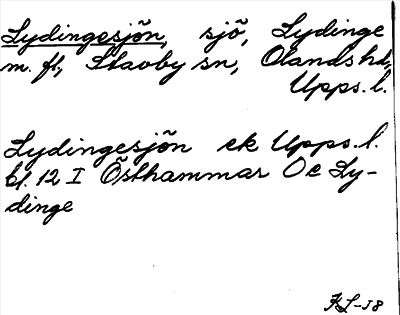 Lydingesjön, sjö, Lydinge
m. fl., Stavby sn, Olands hd,
Upps. l.
Lydingesjön ek Upps. l.
bl. 12 I Östhammar Oc Ly-
dinge
KL-38